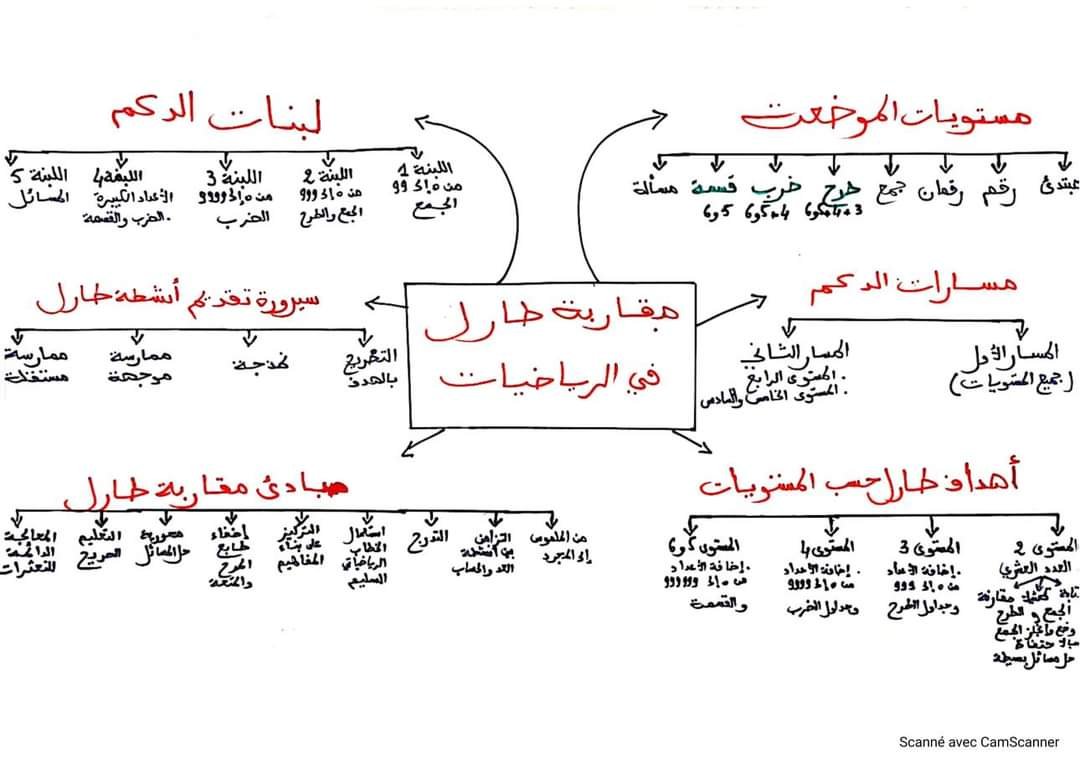 مقاربة طارل
في الرياضيات
مستويات الموضعت
مبتدئ
رقم
رقمان
جمع
طرح
3+4+5و6
ضرب
4+5و6
قسمة
5و6
مسألة
مسارات الدكم
المسار الأول
(جميع المستويات)
المسار الثاني
. المستوى الرابع
. المستوى الخامس والسادس
أهداف طارل حسب المستويات
المستوى 2
العدد العشري
كتابة تمثيل مقارنة
الجمع و الطرح
وضع وإنجاز الجمع
بالاحتفاظ
حل مسائل بسيطة
المستوى 3
. إضافة الأعداد
من 0 إلى 999
وجداول الطرح
المستوى 4
. إضافة الأعداد
من 0 إلى 9999
وجداول الضرب
المستوى 5و6
. إضافة الأعداد
من 0 إلى 999999
والقسمة
لبنات الدكم
اللبنة 1
من 0 إلى 99
الجمع
اللبنة 2
من 0 إلى 999
الجمع والطرح
اللبنة 3
من 0 إلى 9999
الضرب
اللبنة 4
الأعداد الكبيرة
. الضرب والقسمة
اللبنة 5
المسائل
سيرورة تقديم أنشطة طارل
التصريح
بالهدف
نمذجة
ممارسة
موجهة
ممارسة
مستقلة
مبادئ مقاربة طارل
من الملموس
إلى المجرد
التزامن
بين أنشطة
العد والحساب
التدرج
استعمال
الخطاب
الرياضياتي
السليم
التركيز
على بناء
المفاهيم
إضفاء
طابع
المرح
والمتعة
محورية
حل المسائل
التعليم
الصريح
المعالجة
الدائمة
للتعثرات
Scanné avec CamScanner